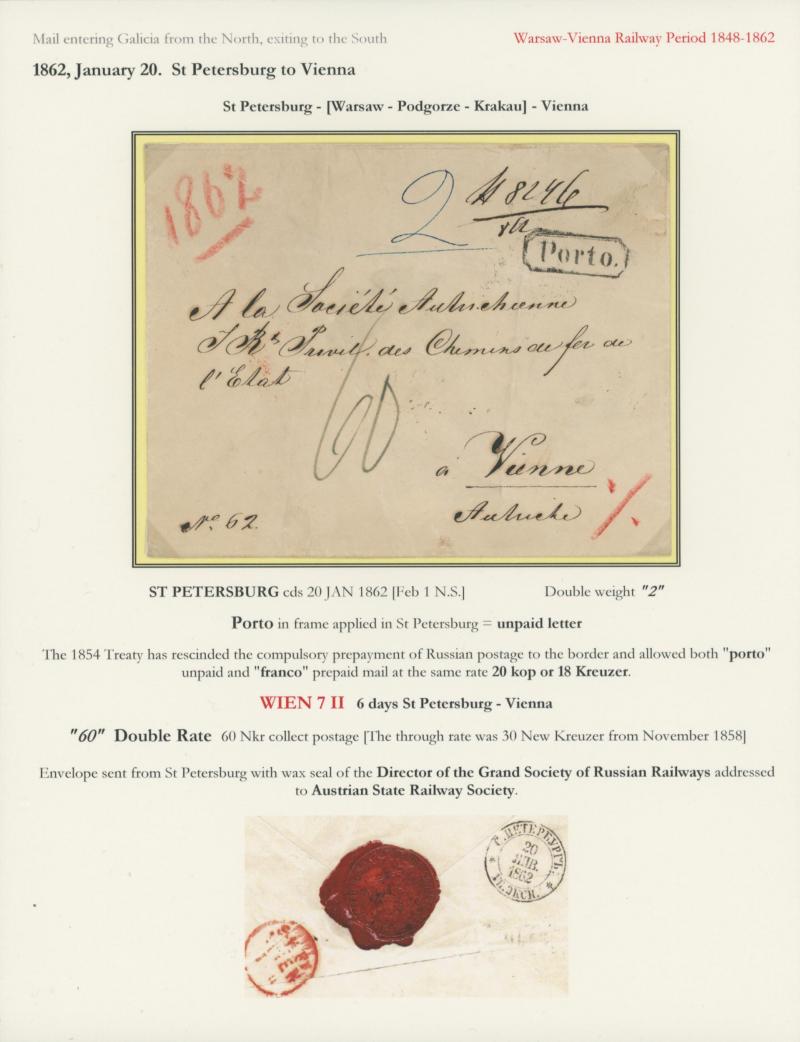 Mail entering Galicia from the North, exiting to the South
Warsaw-Vienna Railway Period 1848-1862
1862, January 20.  St Petersburg to Vienna
St Petersburg - [Warsaw - Podgorze - Krakau] - Vienna
1862
2
8246
Porto.
A la Société Autrichienne
I R^s Privil. des Chemins de fer de
l'Etat
60
à Vienne
Autriche
No. 62.
ST PETERSBURG cds 20 JAN 1862 [Feb 1 N.S.]
Double weight "2"
Porto in frame applied in St Petersburg = unpaid letter
The 1854 Treaty has rescinded the compulsory prepayment of Russian postage to the border and allowed both "porto"
unpaid and "franco" prepaid mail at the same rate 20 kop or 18 Kreuzer.
WIEN 7 II  6 days St Petersburg - Vienna
"60" Double Rate  60 Nkr collect postage [The through rate was 30 New Kreuzer from November 1858]
Envelope sent from St Petersburg with wax seal of the Director of the Grand Society of Russian Railways addressed
to Austrian State Railway Society.
С.ПЕТЕРБУРГЪ.
20
ЯНВ.
1862